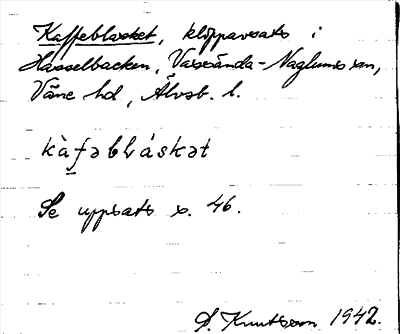 Kaffeblasket, klippavsats i
Hasselbacken, Vassända-Naglums sn,
Väne hd, Älvsb. l.
kàfəblàskət
Se uppsats s. 46.
Knutsson 1942.